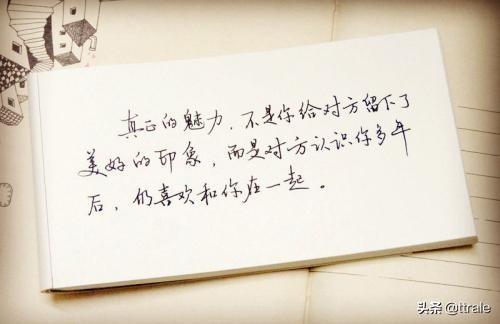 真正的魅力,不是你给对方留下了
美好的印象,而是对方认识你多年
后,仍喜欢和你在一起。
头条 @ttrale